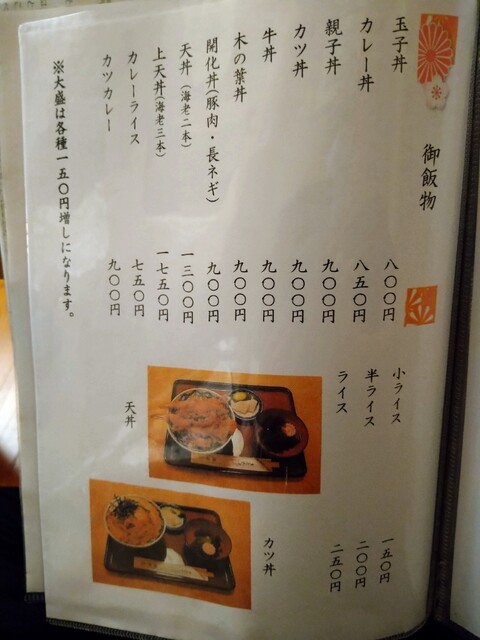 御飯物
玉子丼 八〇〇円
カレー丼 八五〇円
親子丼 九〇〇円
カツ丼 九〇〇円
牛丼 九〇〇円
木の葉丼 九〇〇円
開化丼(豚肉・長ネギ) 九〇〇円
天丼(海老二本) 一三〇〇円
上天丼(海老三本) 一七五〇円
カレーライス 七五〇円
カツカレー 九〇〇円
※大盛は各種一五〇円増しになります。
小ライス 一五〇円
半ライス 二〇〇円
ライス 二五〇円
天丼
カツ丼